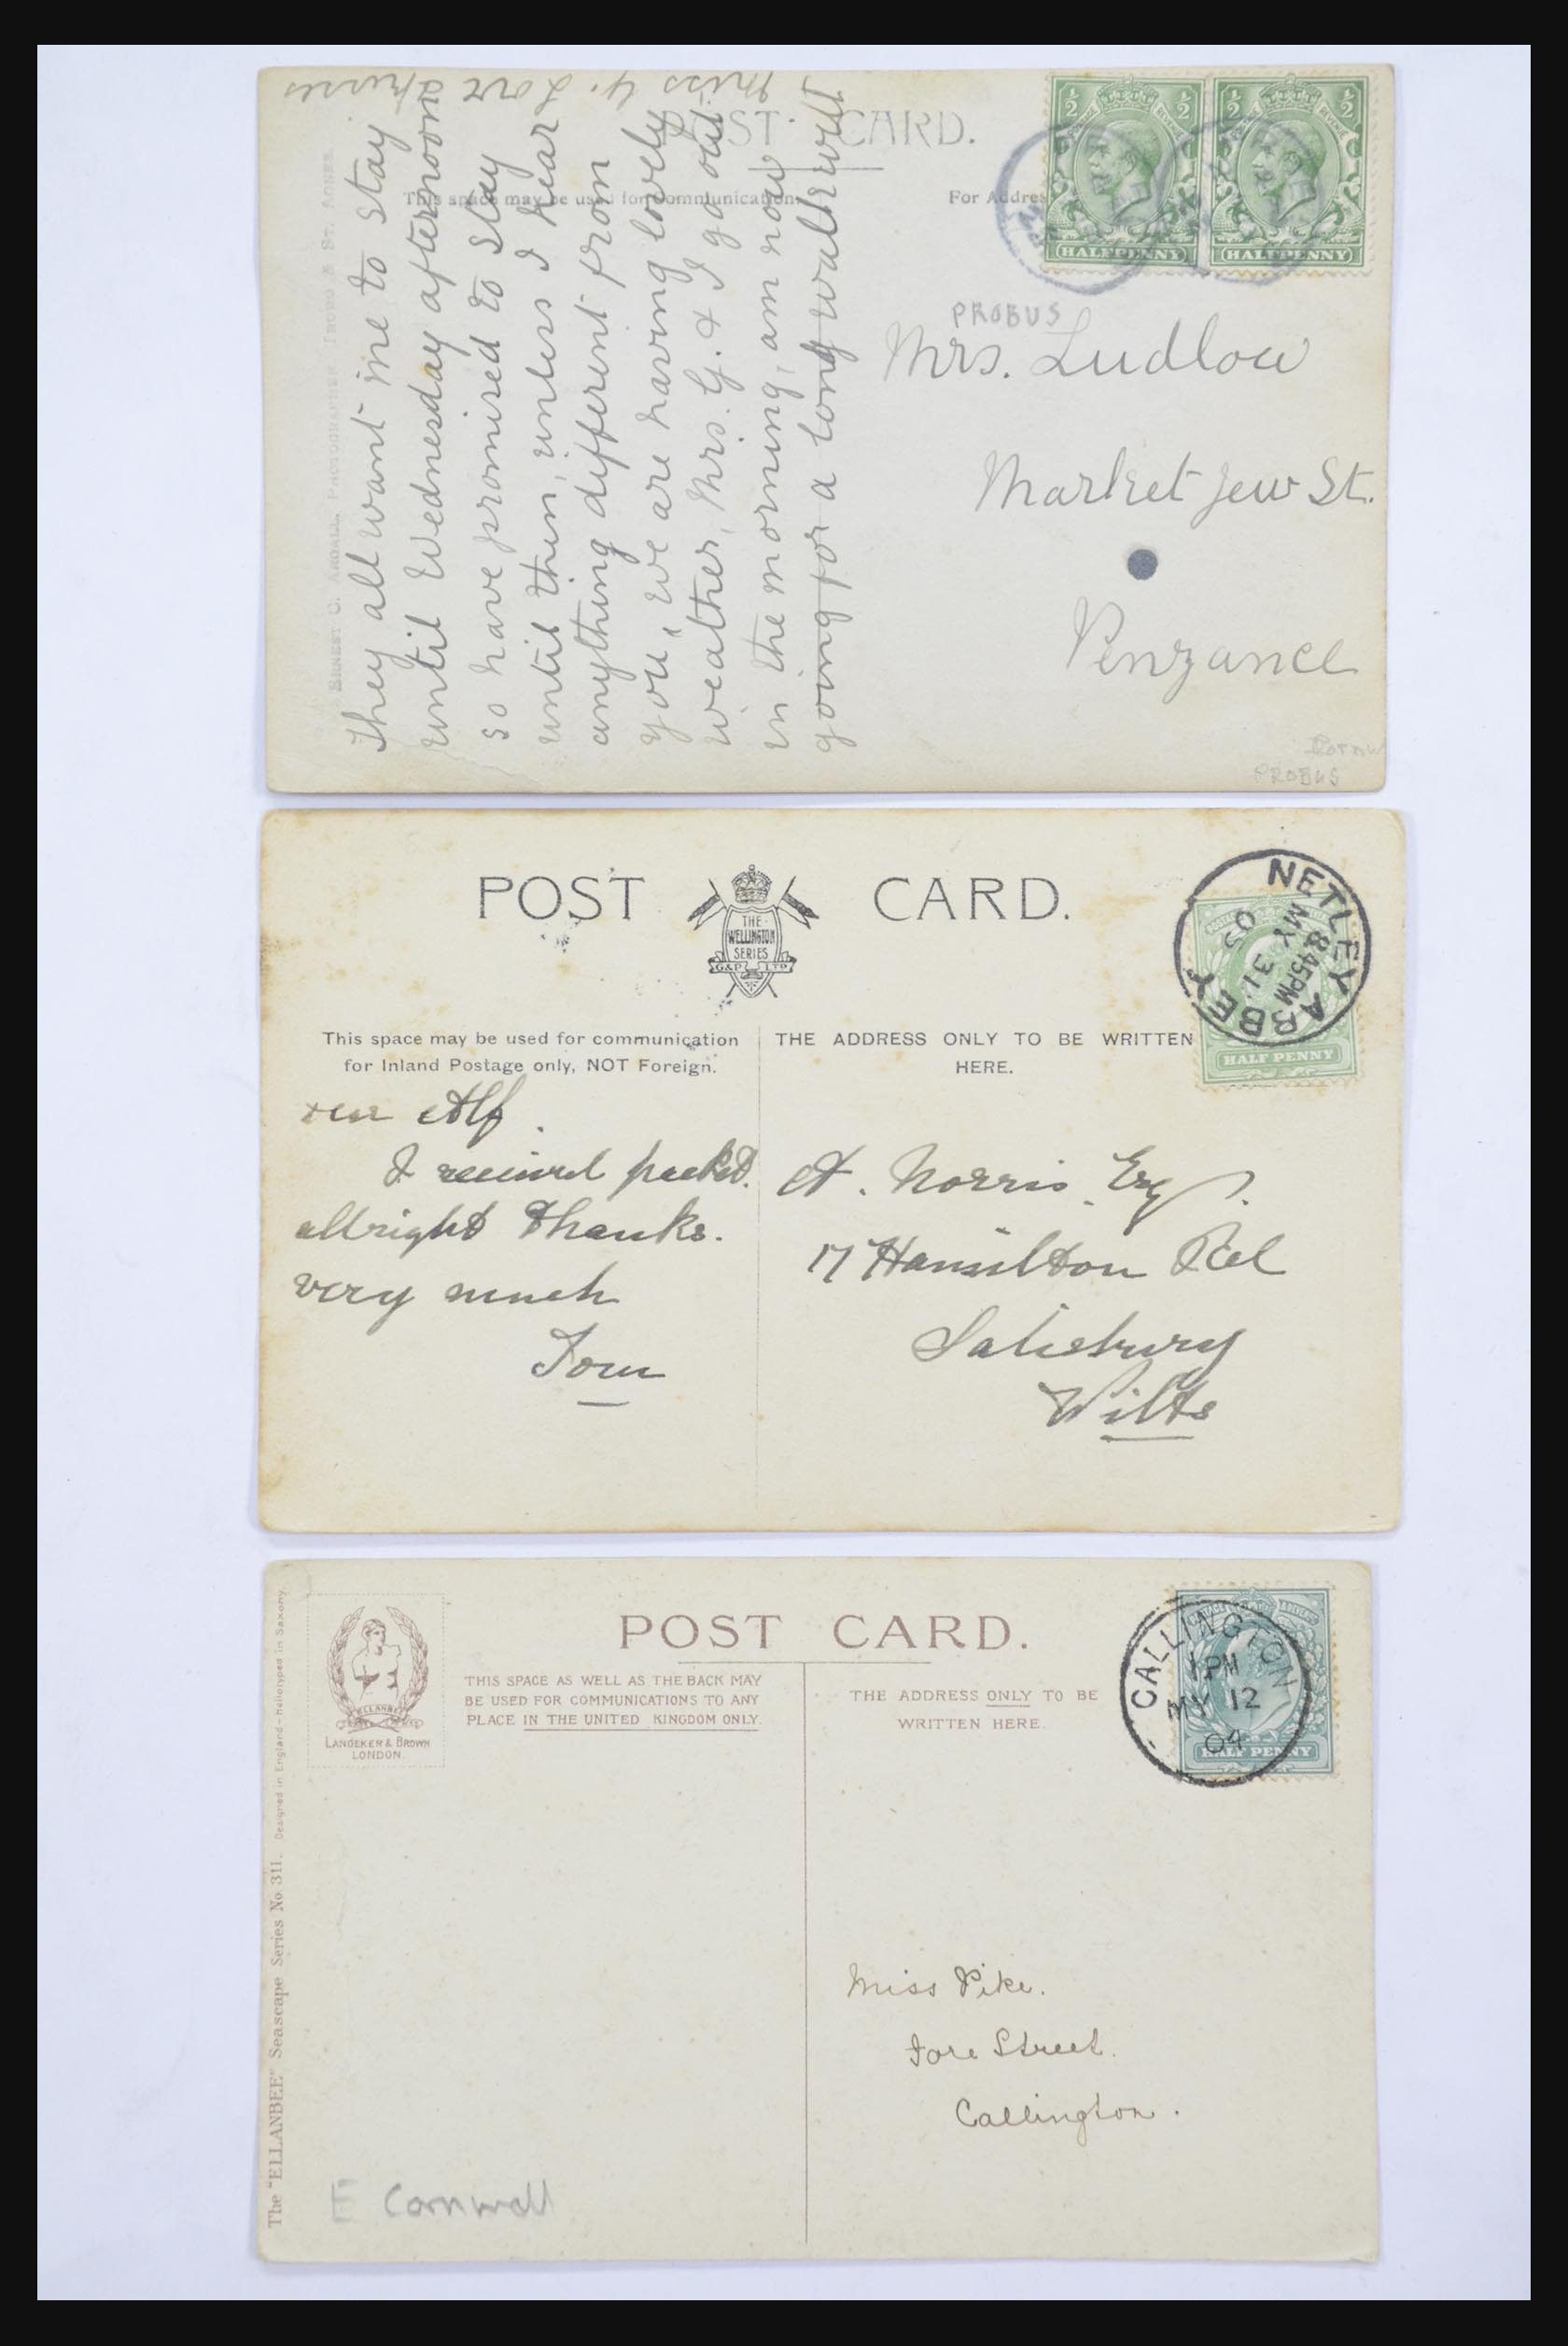 POST CARD.
This space may be used for Communication.
For Address
½ ½ ½ ½
HALFPENNY HALFPENNY
ERNEST C. ARGALL, PHOTOGRAPHER, TRURO & ST. AGNES.
They all want me to stay
until Wednesday afternoon
so have promised to stay
until then, unless I hear
anything different from
you, we are having lovely
weather, Mrs. G. & I go out
in the morning, am now
going for a long walk with
Miss G. Love
PROBUS
Mrs. Ludlow
Market Jew St.
Penzance
Cornw
PROBUS
POST CARD.
THE
WELLINGTON
SERIES
G&D LTD
NETLEY ABBEY
8.45PM
MY 31
05
HALF PENNY
This space may be used for communication
for Inland Postage only, NOT Foreign.
THE ADDRESS ONLY TO BE WRITTEN
HERE.
Dear Alf.
I received packet.
allright Thanks.
very much
Tom
A. Norris. Esq.
17 Hamilton Rd
Salisbury
Wilts
POST CARD.
ELLANBEE
LANDEKER & BROWN
LONDON.
THIS SPACE AS WELL AS THE BACK MAY
BE USED FOR COMMUNICATIONS TO ANY
PLACE IN THE UNITED KINGDOM ONLY.
THE ADDRESS ONLY TO BE
WRITTEN HERE.
CALLINGTON
1 PM
MY 12
04
HALF PENNY
The "ELLANBEE" Seascape Series No 311. Designed in England - Heliotyped in Saxony.
Miss Pike.
Fore Street.
Callington.
E Cornwall